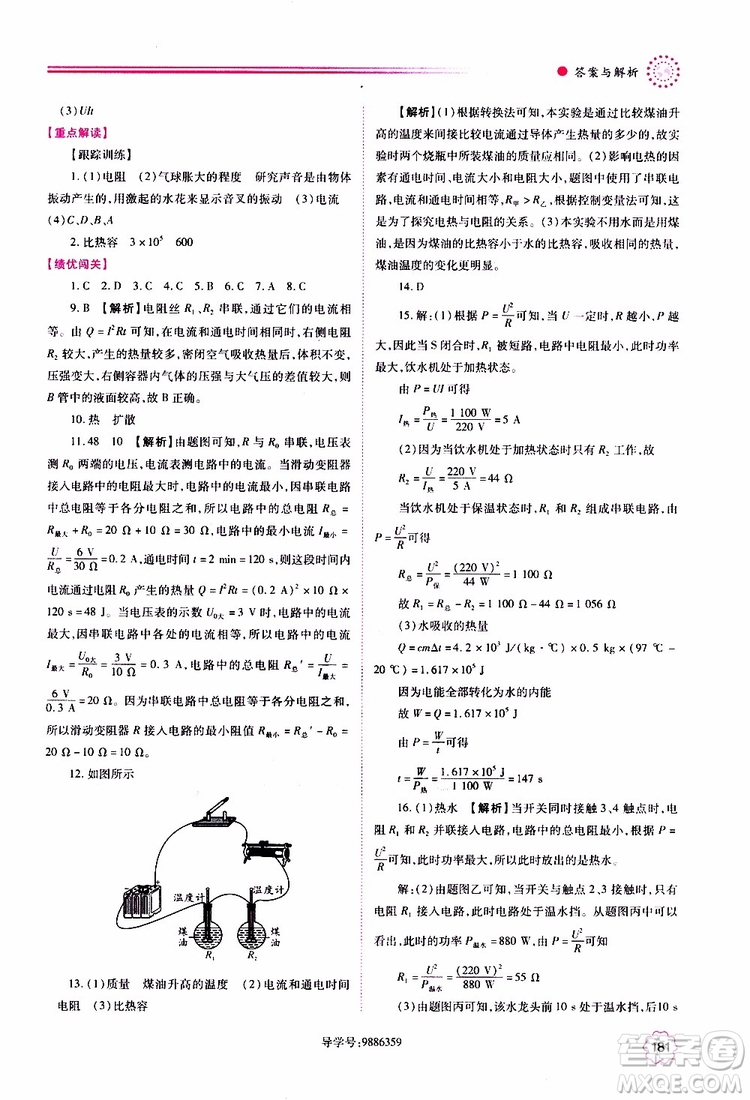 答案与解析
(3)Uh
【重点解读】
【跟踪训练】
1.(1)电阻 (2)气球胀大的程度 研究声音是由物体
振动产生的,用激起的水花来显示音叉的振动 (3)电流
(4)C、D、A、B
2.比热容 3×10⁵ 600
【绩优闯关】
1.C 2.D 3.D 4.C 5.C 6.D 7.A 8.A
9.B 【解析】电阻丝 R₁、R₂ 串联,通过它们的电流相
等。由 Q=I²Rt 可知,在电流和通电时间相同时,右侧电阻
R₂ 较大,产生的热量较多,密闭空气吸收热量后,体积膨胀,
压强变大,右侧容器内气体的压强与大气压的差值较大,所以
B 管中的液面较高,故 B 正确。
10.热 扩散
11.48 10 【解析】由题图可知,R 与 R₀ 串联,电压表
测 R₀ 两端的电压,电流表测电路中的电流。当滑动变阻器
接入电路中的电阻最大时,电路中的电流最小,因串联电路
中总电阻等于各分电阻之和,所以电路中的总电阻 R总=
R最大+R₀=20 Ω+10 Ω=30 Ω,电路中的最小电流 I最小=
U/R总=6 V/30 Ω=0.2 A,通电时间 t=2 min=120 s,则这段时间内
定值电阻 R₀ 产生的热量 Q=I²R₀t=(0.2 A)²×10 Ω×
120 s=48 J。当电压表的示数 U₀大=3 V 时,电路中的电流
最大,因串联电路中各处的电流相等,所以电路中的最大电流
I最大=U₀大/R₀=3 V/10 Ω=0.3 A,此时电路中的总电阻 R总′=U/I最大=
6 V/0.3 A=20 Ω。因为串联电路中总电阻等于各分电阻之和,
所以滑动变阻器 R 接入电路的最小阻值 R最小=R总′-R₀=
20 Ω-10 Ω=10 Ω。
12.如图所示
温度计
温度计
煤油
煤油
R₁
R₂
13.(1)质量 煤油升高的温度 (2)电流和通电时间
电阻 (3)比热容
【解析】(1)根据转换法可知,本实验是通过比较煤油升
高的温度来间接比较电流通过导体产生热量的多少的,故实
验时两个烧瓶中所装煤油的质量应相同。(2)影响电热的因
素有通电时间、电流大小和电阻大小,题图中使用了串联电
路,R甲>R乙,根据控制变量法可知,通电时间应相同,故这样
是为了探究电热与电阻的关系。(3)本实验不用水而是用煤
油,是因为煤油的比热容小于水的比热容,吸收相同的热量,
煤油温度的变化更明显。
14.D
15.解:(1)根据 P=U²/R可知,当 U 一定时,R 越小,P 越
大,故开关 S 闭合时,R₁ 被短路,电路中电阻最小,此时功率最
大,饮水机处于加热状态。
由 P=UI 可得
I热=P热/U=1 100 W/220 V=5 A
(2)因为当饮水机处于加热状态时只有 R₂ 工作,故
R₂=U/I热=220 V/5 A=44 Ω
当饮水机处于保温状态时,R₁ 和 R₂ 组成串联电路,由
P=U²/R可得
R总=U²/P保=(220 V)²/44 W=1 100 Ω
故 R₁=R总-R₂=1 100 Ω-44 Ω=1 056 Ω
(3)水吸收的热量
Q=cmΔt=4.2×10³ J/(kg·℃)×0.5 kg×(97 ℃-
20 ℃)=1.617×10⁵ J
因为电能全部转化为水的内能
故 W=Q=1.617×10⁵ J
由 P=W/t可得
t=W/P热=1.617×10⁵ J/1 100 W=147 s
16.(1)热水 【解析】当开关同时接触 3、4 触点时,电
阻 R₁ 和 R₂ 并联接入电路,电路中的总电阻最小,根据 P=
U²/R可知,此时功率最大,所以此时放出的是热水。
解:(2)由题图乙可知,当开关与触点 2、3 接触时,只有
电阻 R₁ 接入电路,此时电路处于温水挡。从题图丙中可以
看出,此时功率 P温水=880 W,由 P=U²/R可知
R₁=U²/P温水=(220 V)²/880 W=55 Ω
(3)由题图丙可知,该水龙头前 10 s 处于温水挡,后 10 s
导学号:9886359
181
答案圈
MXQE.COM